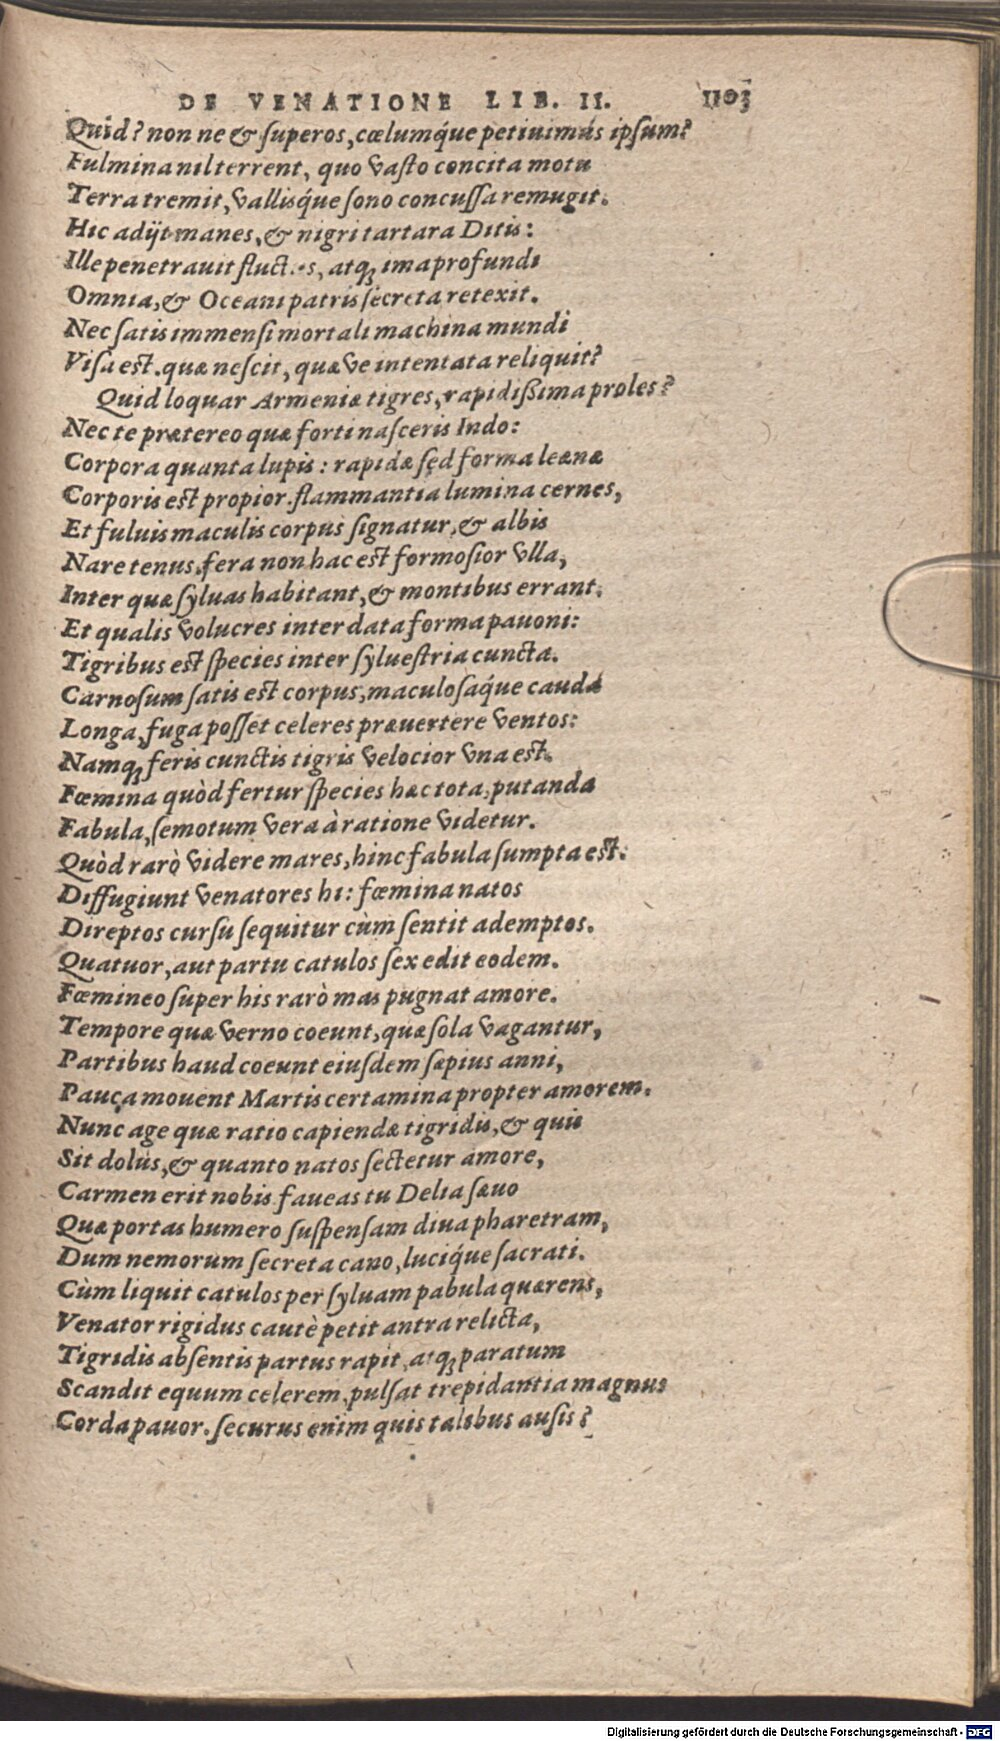 DE VENATIONE LIB. II. 1103
Quid? non ne & ſuperos, cœlumq́ue petiuimus ipſum?
Fulmina nil terrent, quo vaſto concita motu
Terra tremit, vallisq́ue ſono concuſſa remugit.
Hic adijt manes, & nigri tartara Ditis:
Ille penetrauit atq; ima profundi
Omnia, & Oceani patris ſecreta retexit.
Nec ſatis immenſi mortali machina mundi
Viſa est. quæ neſcit, quæ ve intentata reliquit?
Quid loquar Armeniæ tigres, rapidißima proles?
Nec te prætereo quæ forti naſceris Indo:
Corpora quanta lupis: rapidæ ſed forma leænæ
Corporis est propior. flammantia lumina cernes,
Et fuluis maculis corpus ſignatur, & albis
Nare tenus, fera non hac est formoſior vlla,
Inter quæ ſyluas habitant, & montibus errant.
Et qualis volucres inter data forma pauoni:
Tigribus est ſpecies inter ſylueſtria cuncta.
Carnoſum ſatis est corpus, maculoſaq́ue cauda
Longa, fuga poſſet celeres præuertere ventos:
Namq; feris cunctis tigris velocior vna est.
Fœmina quòd fertur ſpecies hæc tota, putanda
Fabula, ſemotum vera à ratione videtur.
Quòd rarò videre mares, hinc fabula ſumpta est.
Diffugiunt venatores hi: fœmina natos
Direptos curſu ſequitur cùm ſentit ademptos.
Quatuor, aut partu catulos ſex edit eodem.
Fœmineo ſuper his rarò mas pugnat amore.
Tempore quæ verno coeunt, quæ ſola vagantur,
Partibus haud coeunt eiuſdem ſæpius anni,
Pauca mouent Martis certamina propter amorem.
Nunc age quæ ratio capiendæ tigridis, & quis
Sit dolus, & quanto natos ſectetur amore,
Carmen erit nobis faueas tu Delia ſæuo
Quæ portas humero ſuſpenſam diua pharetram,
Dum nemorum ſecreta cano, luciq́ue ſacrati.
Cùm liquit catulos per ſyluam pabula quærens,
Venator rigidus cautè petit antra relicta,
Tigridis abſentis partus rapit, atq; paratum
Scandit equum celerem, pulſat trepidantia magnus
Corda pauor. ſecurus enim quis talibus auſis?
Digitalisierung gefördert durch die Deutsche Forschungsgemeinschaft - DFG